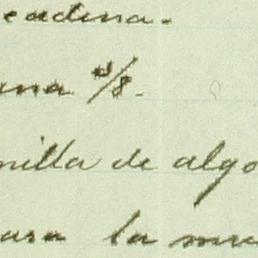 eadena.
ana 3/8.
nilla de algo
para la me